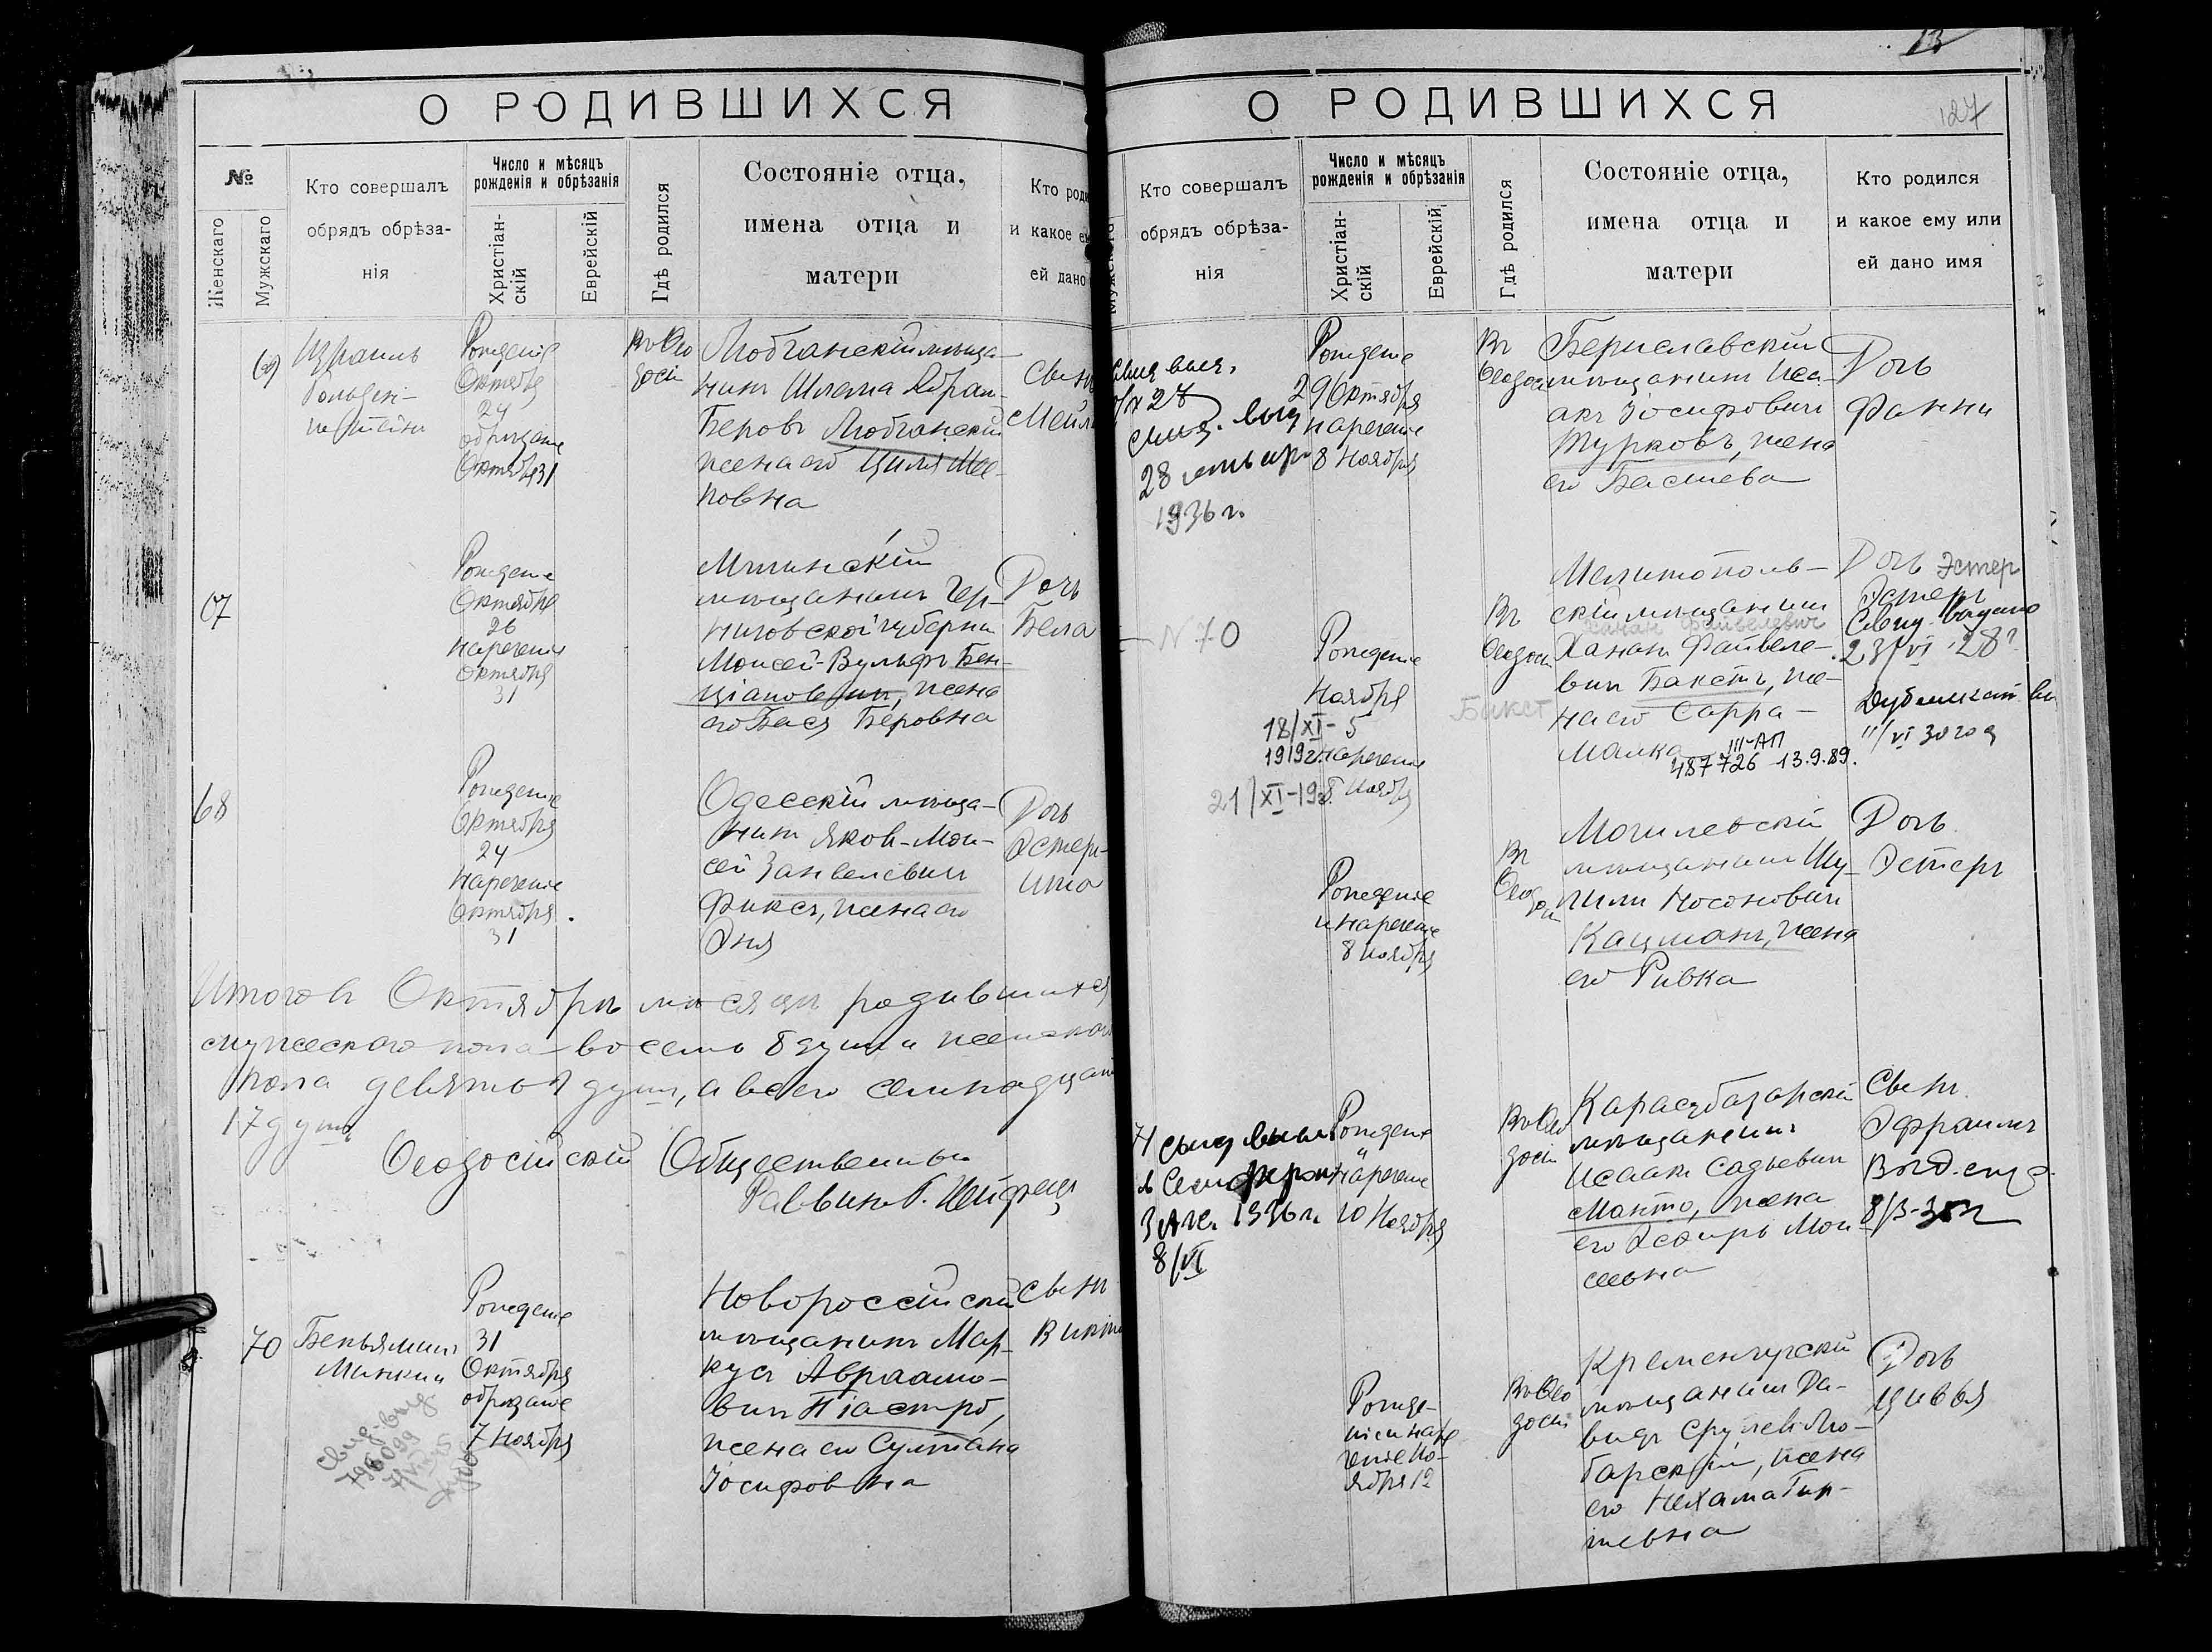 О РОДИВШИХСЯ
№
Женскаго
Мужскаго
Кто совершалъ
обрядъ обрѣза-
нія
Число и мѣсяцъ
рожденія и обрѣзанія
Христіан-
скій
Еврейскій
Гдѣ родился
Состояніе отца,
имена отца и
матери
Кто роди
и какое ем
ей дано
Израиль
Рожденіе
Октября
24
обрѣзаніе
Октября 31
Въ Ѳео
досіи
мѣща-
нинъ Шлема Абрам-
Беровъ
жена его Циля
Сынъ
67
Рожденіе
Октября
26
Нареченіе
Октября
31
Мглинскій
мѣщанинъ Чер-
ниговской губерніи
Моисей-Вульфъ Бен-
ціановичъ, жена
его Бася Беровна
Дочь
Бела
68
Рожденіе
Октября
24
Нареченіе
Октября
31
Одесскій мѣща-
нинъ Яковъ-Мои-
сей Занвелевичъ
Фиксъ, жена его
Эня
Дочь
Эстеръ-
Ита
Итого въ Октябрѣ мѣсяцѣ родившихся
мужескаго пола восемь 8 душъ и женскаго
пола девять 9 душъ, а всего семнадцать
17 душъ
Ѳеодосійскій Общественный
Раввинъ Г. Нейфецъ
70
Беньяминъ
Манкинъ
Рожденіе
31
Октября
обрѣзаніе
7 Ноября
Новороссійскій
мѣщанинъ Мар-
кусъ Авраамо-
вичъ Піастро,
жена его Султана
Іосифовна
Сынъ
О РОДИВШИХСЯ
127
Мужскаго
Кто совершалъ
обрядъ обрѣза-
нія
Число и мѣсяцъ
рожденія и обрѣзанія
Христіан-
скій
Еврейскій
Гдѣ родился
Состояніе отца,
имена отца и
матери
Кто родился
и какое ему или
ей дано имя
28
1936 г.
Рожденіе
29 Октября
нареченіе
8 Ноября
Въ
Ѳеодосіи
Бериславскій
мѣщанинъ Иса-
акъ Іосифовичъ
Турковъ, жена
его Басшева
Дочь
Фанни
N 70
Рожденіе
Ноября
5
нареченіе
8 Ноября
18/XI-
1919 г.
21/XI-19
Въ
Ѳеодосіи
Бакст
Мелитополь-
скій мѣщанинъ
Ханан Файвелевич
Хананъ Файвеле-
вичъ Бакстъ, же-
на его Сарра-
Малка
III-АП
487726 13.9.89.
Дочь Эстер
Эстеръ
Свид. выдано
23/VI 28 г.
Дубликат вы
11/VI 30 год
Рожденіе
и нареченіе
8 Ноября
Въ
Ѳеодосіи
Могилевскій
мѣщанинъ Шу-
лимъ Носоновичъ
Кацманъ, жена
его Ривка
Дочь
Эстеръ
1936 г.
8/VI
Рожденіе
и
нареченіе
10 Ноября
Въ Ѳео
досіи
Карасубазарскій
мѣщанинъ
Исаакъ Садьевичъ
Манто, жена
его Эсѳирь Мои-
сеевна
Сынъ
Эфраимъ
Выд. свид.
Рожде-
ніе и наре
ченіе Но-
ября 12
Въ Ѳео
досіи
Кременчугскій
мѣщанинъ Да-
видъ Срулевъ Лю-
барскій, жена
его Нехама Гир-
шевна
Дочь
Цивья